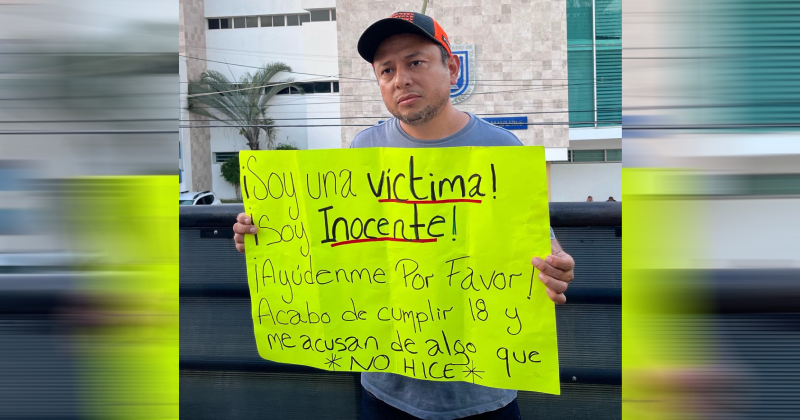 ¡Soy una víctima!
¡Soy Inocente!
¡Ayúdenme Por Favor!
Acabo de cumplir 18 y
me acusan de algo que
*NO HICE*